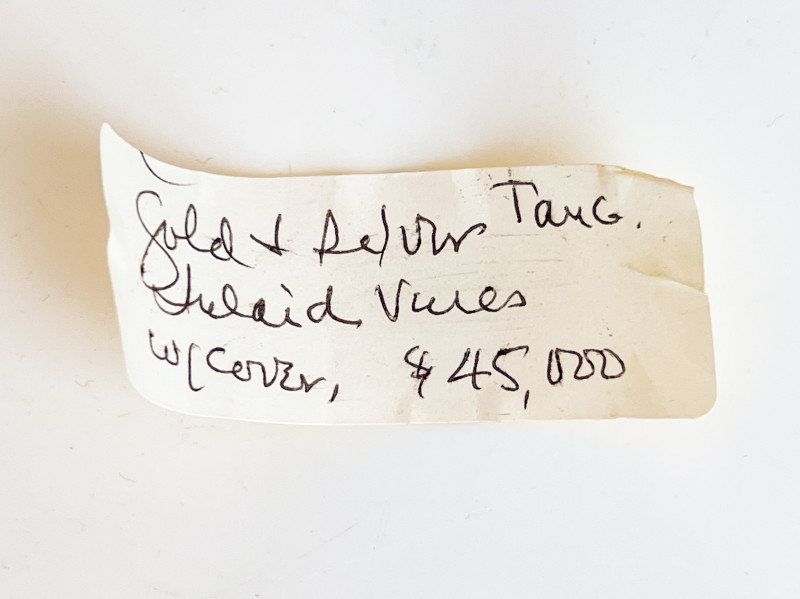 Gold + Silver Tang.
Inlaid Vines
w/cover, $45,000